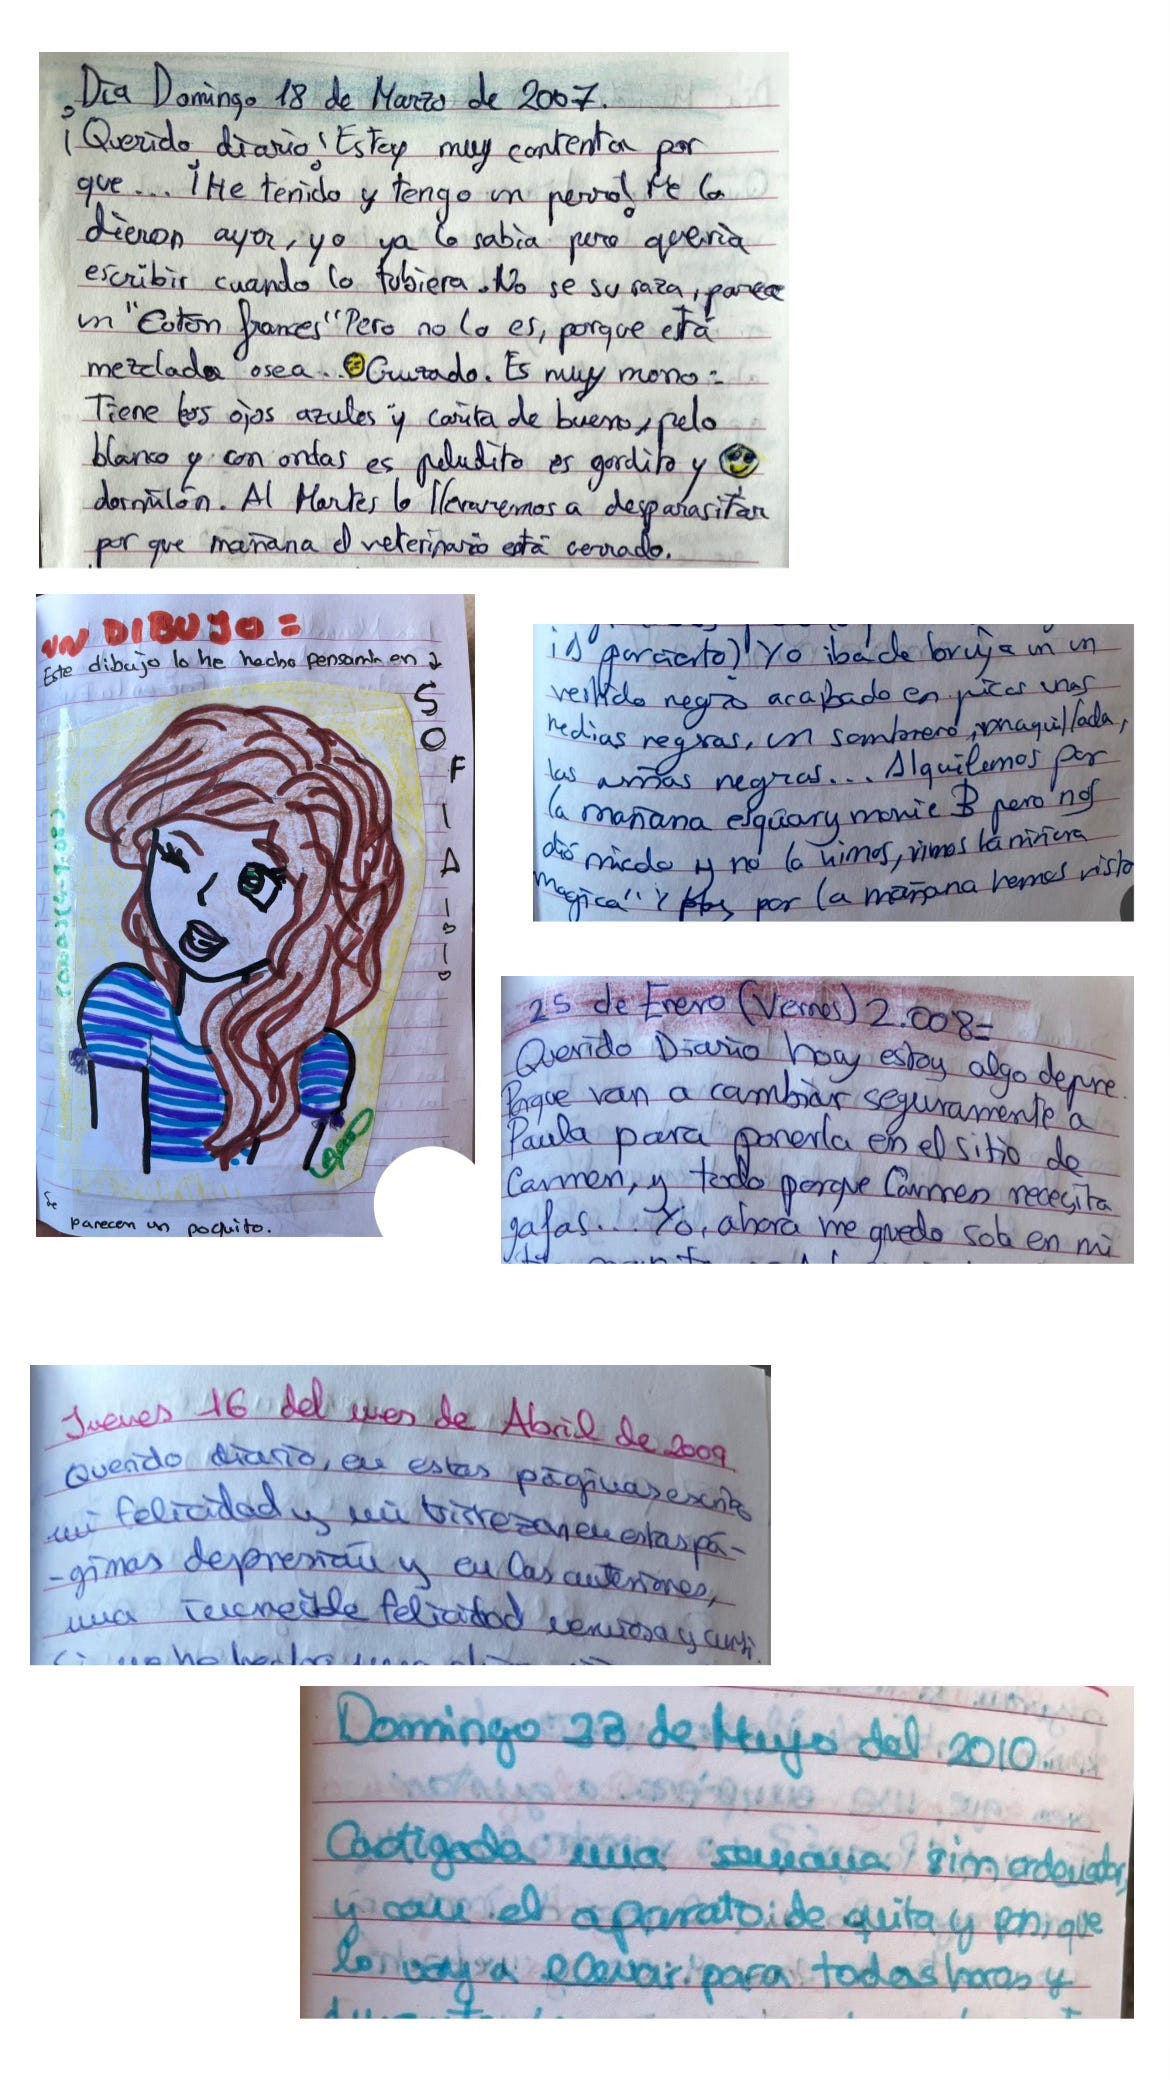 Dia Domingo 18 de Marzo de 2007.
¡Querido diario! Estoy muy contenta por
que... ¡He tenido y tengo un perro! Me lo
dieron ayer, yo ya lo sabia pero queria
escribir cuando lo tubiera. No se su raza, parece
un "Coton frances" Pero no lo es, porque está
mezclado osea... Cruzado. Es muy mono:
Tiene los ojos azules y carita de bueno, pelo
blanco y con ondas es peludito es gordito y
dormilón. Al Martes lo llevaremos a desparasitar
por que mañana el veterinario está cerrado.
UN DIBUJO =
Este dibujo lo he hecho pensando en
SOFIA
Se
parecen un poquito.
por cierto) Yo iba de bruja in un
vestido negro acabado en picos unas
medias negras, un sombrero, maquillada,
las uñas negras... Alquilemos por
la mañana esquary movie 3 pero nos
dió miedo y no la vimos, vimos la niñera
magica" y por la mañana hemos visto
25 de Enero (Viernes) 2.008=
Querido Diario hoy estoy algo depre.
Porque van a cambiar seguramente a
Paula para ponerla en el sitio de
Carmen, y todo porque Carmen necesita
gafas... Yo, ahora me quedo sola en mi
Jueves 16 del mes de Abril de 2009
Querido diario, en estas páginas escribo
mi felicidad y mi tristeza en estas pá-
-ginas depresión y en las anteriores,
una increíble felicidad
Domingo 23 de Mayo del 2010.
Castigada una semana sin ordenador,
y con el aparato de quita y pon que
lo voy a llevar para todas horas y